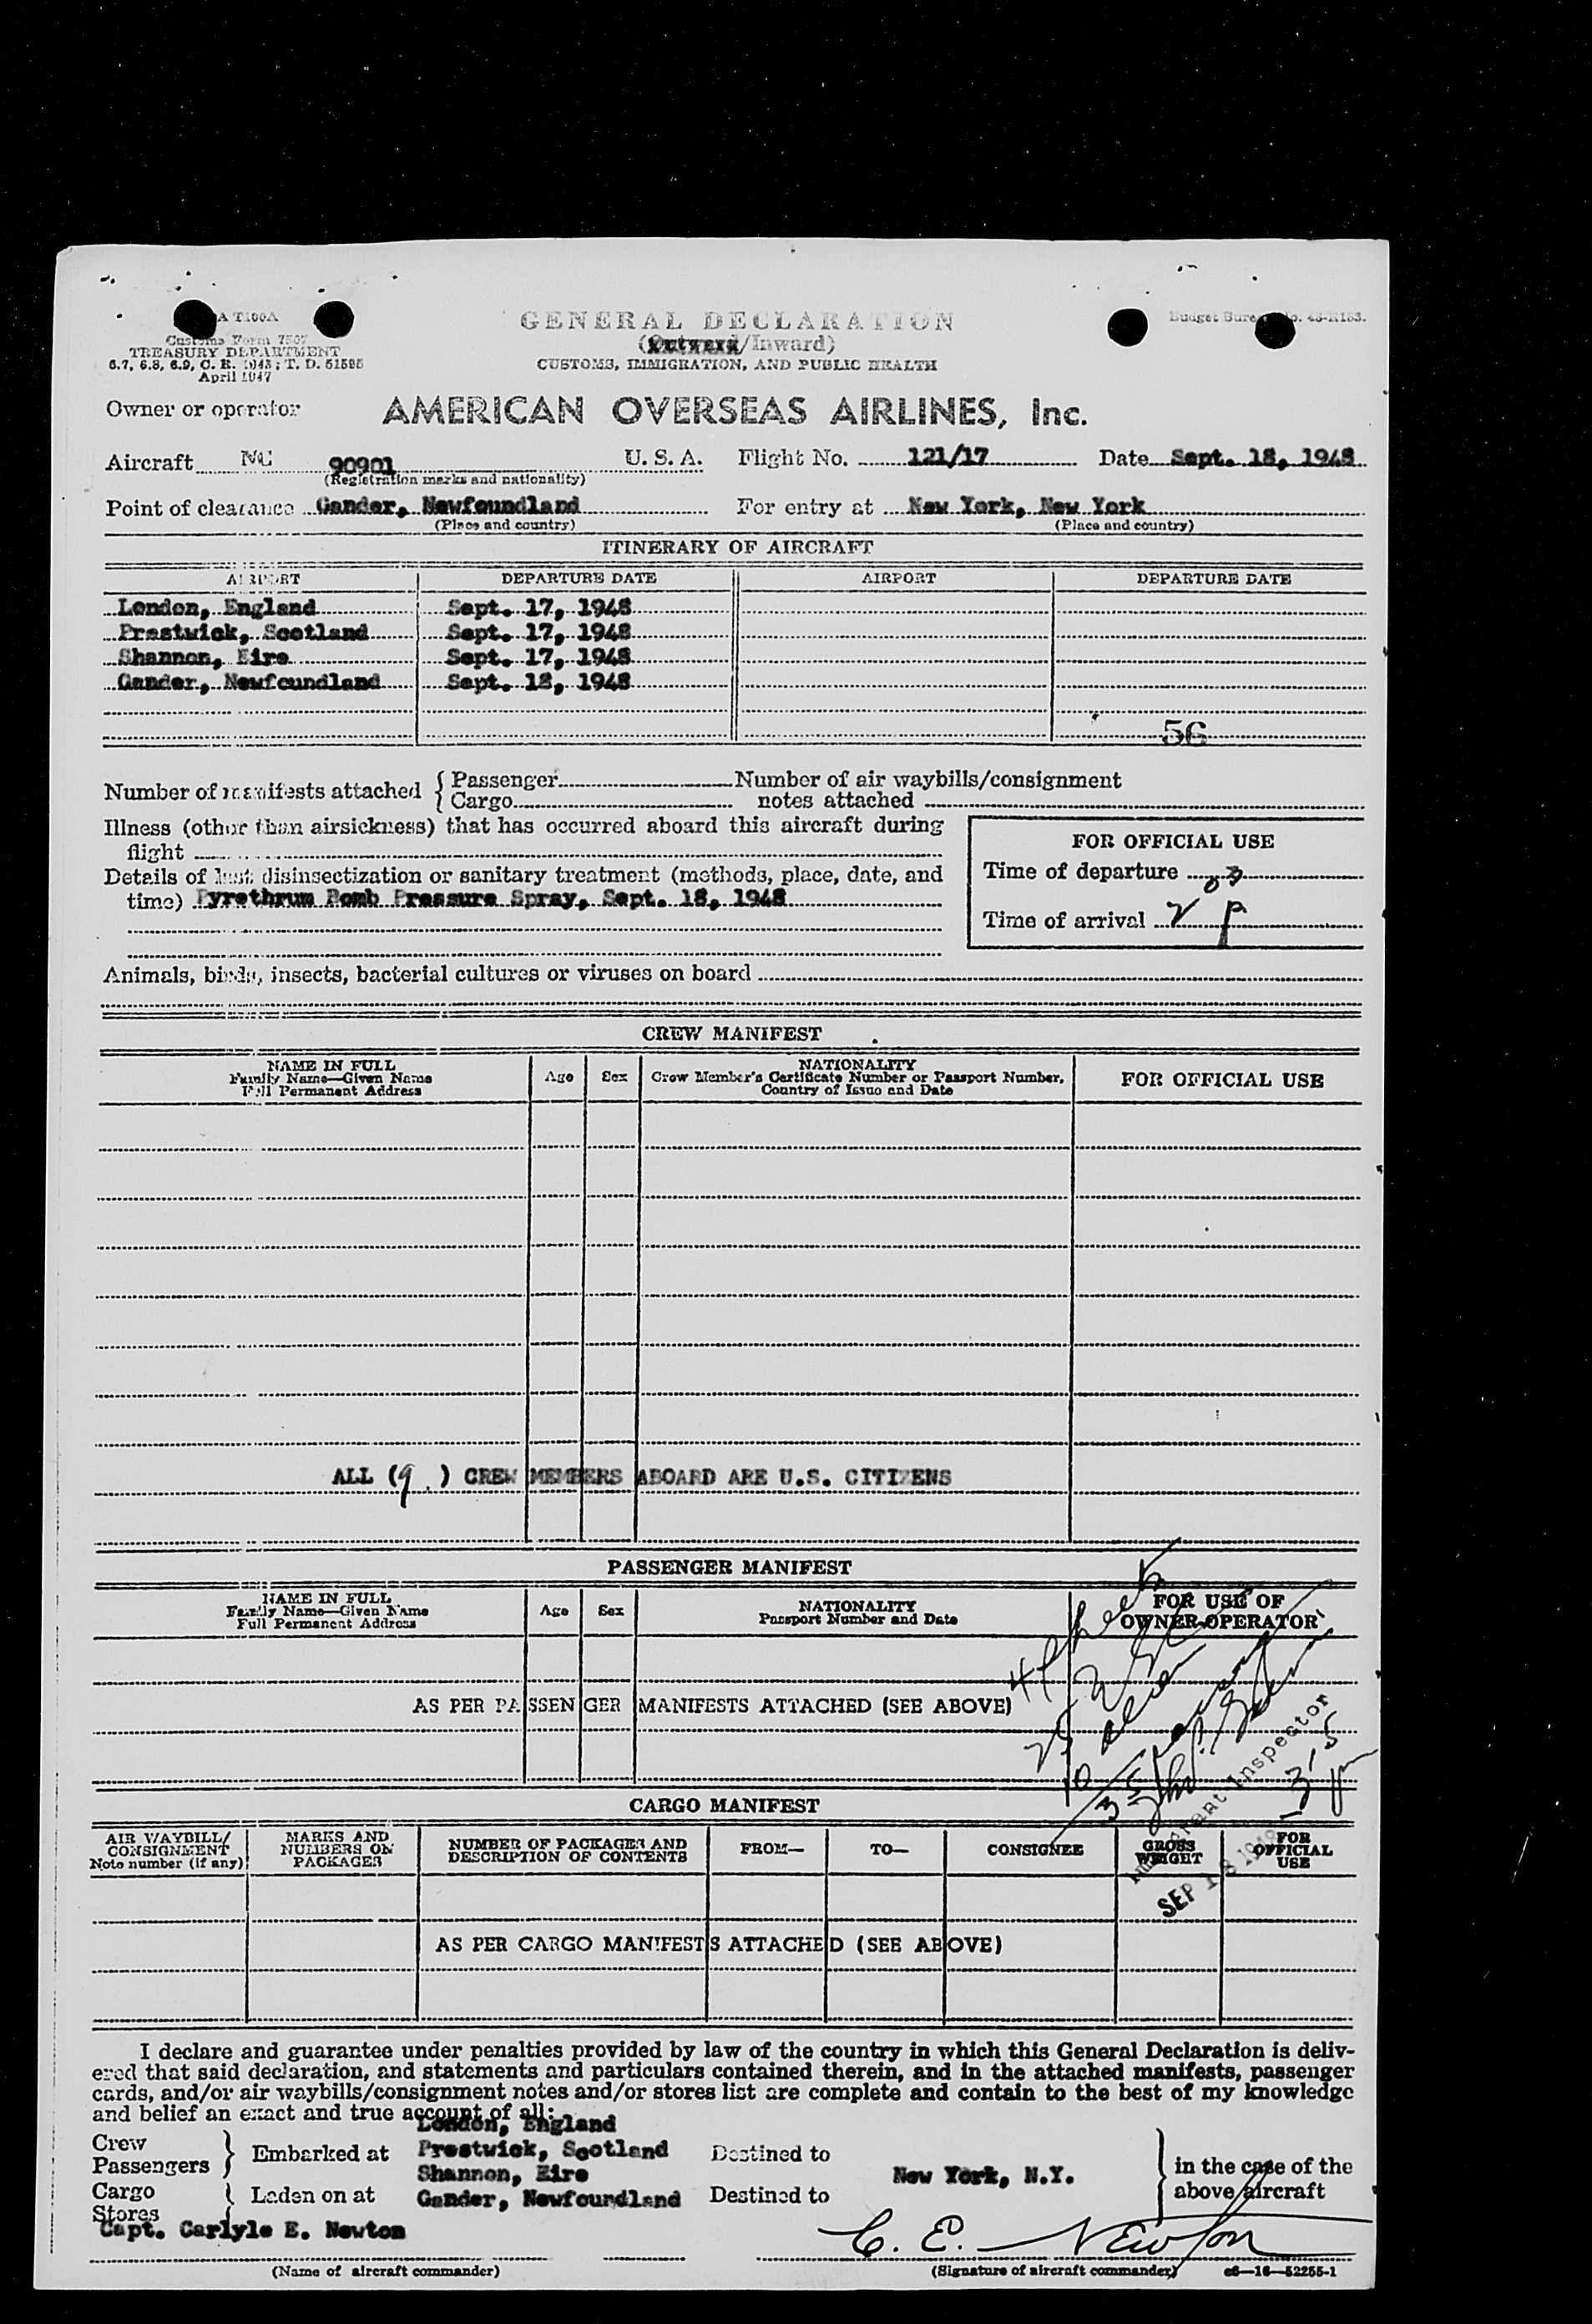 GENERAL DECLARATION
(Outward/Inward)
CUSTOMS, IMMIGRATION, AND PUBLIC HEALTH
A T100A
Customs Form 7507
TREASURY DEPARTMENT
6.7, 6.8, 6.9, C. R. 1943; T. D. 51595
April 1947
Budget Bureau No. 43-R153.
Owner or operator AMERICAN OVERSEAS AIRLINES, Inc.
Aircraft NC 90901 U. S. A. Flight No. 121/17 Date Sept. 18, 1948
(Registration marks and nationality)
Point of clearance Gander, Newfoundland For entry at New York, New York
(Place and country) (Place and country)
ITINERARY OF AIRCRAFT
AIRPORT DEPARTURE DATE AIRPORT DEPARTURE DATE
London, England Sept. 17, 1948
Prestwick, Scotland Sept. 17, 1948
Shannon, Eire Sept. 17, 1948
Gander, Newfoundland Sept. 18, 1948
56
Number of manifests attached { Passenger Number of air waybills/consignment
{ Cargo notes attached
Illness (other than airsickness) that has occurred aboard this aircraft during
flight
Details of last disinsectization or sanitary treatment (methods, place, date, and
time) Pyrethrum Bomb Pressure Spray, Sept. 18, 1948
FOR OFFICIAL USE
Time of departure
Time of arrival 2 03 P
Animals, birds, insects, bacterial cultures or viruses on board
CREW MANIFEST
NAME IN FULL
Family Name—Given Name
Full Permanent Address
Age
Sex
NATIONALITY
Crew Member's Certificate Number or Passport Number,
Country of Issue and Date
FOR OFFICIAL USE
ALL (9) CREW MEMBERS ABOARD ARE U.S. CITIZENS
PASSENGER MANIFEST
NAME IN FULL
Family Name—Given Name
Full Permanent Address
Age
Sex
NATIONALITY
Passport Number and Date
FOR USE OF
OWNER-OPERATOR
4 sheets
25
10 alien
35
AS PER PASSENGER MANIFESTS ATTACHED (SEE ABOVE)
Immigrant Inspector
SEP 18 1948
CARGO MANIFEST
AIR WAYBILL/
CONSIGNMENT
Note number (if any)
MARKS AND
NUMBERS ON
PACKAGES
NUMBER OF PACKAGES AND
DESCRIPTION OF CONTENTS
FROM—
TO—
CONSIGNEE
GROSS
WEIGHT
FOR
OFFICIAL
USE
AS PER CARGO MANIFESTS ATTACHED (SEE ABOVE)
I declare and guarantee under penalties provided by law of the country in which this General Declaration is deliv-
ered that said declaration, and statements and particulars contained therein, and in the attached manifests, passenger
cards, and/or air waybills/consignment notes and/or stores list are complete and contain to the best of my knowledge
and belief an exact and true account of all:
London, England
Crew
Passengers } Embarked at Prestwick, Scotland Destined to
Shannon, Eire New York, N.Y. in the case of the
Cargo
Stores } Laden on at Gander, Newfoundland Destined to above aircraft
Capt. Carlyle E. Newton C. E. Newton
(Name of aircraft commander) (Signature of aircraft commander) c6—16—52255-1